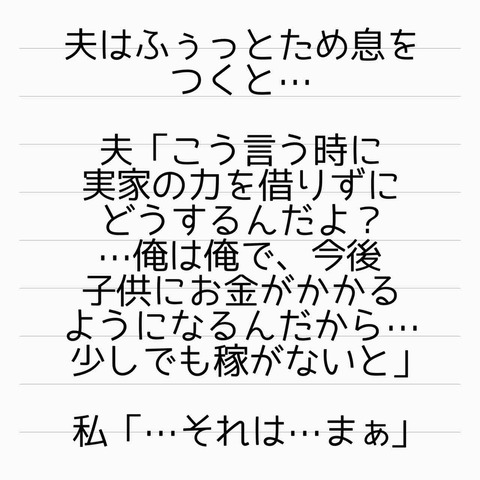 夫はふぅっとため息を
つくと…
夫「こう言う時に
実家の力を借りずに
どうするんだよ？
…俺は俺で、今後
子供にお金がかかる
ようになるんだから…
少しでも稼がないと」
私「…それは…まぁ」